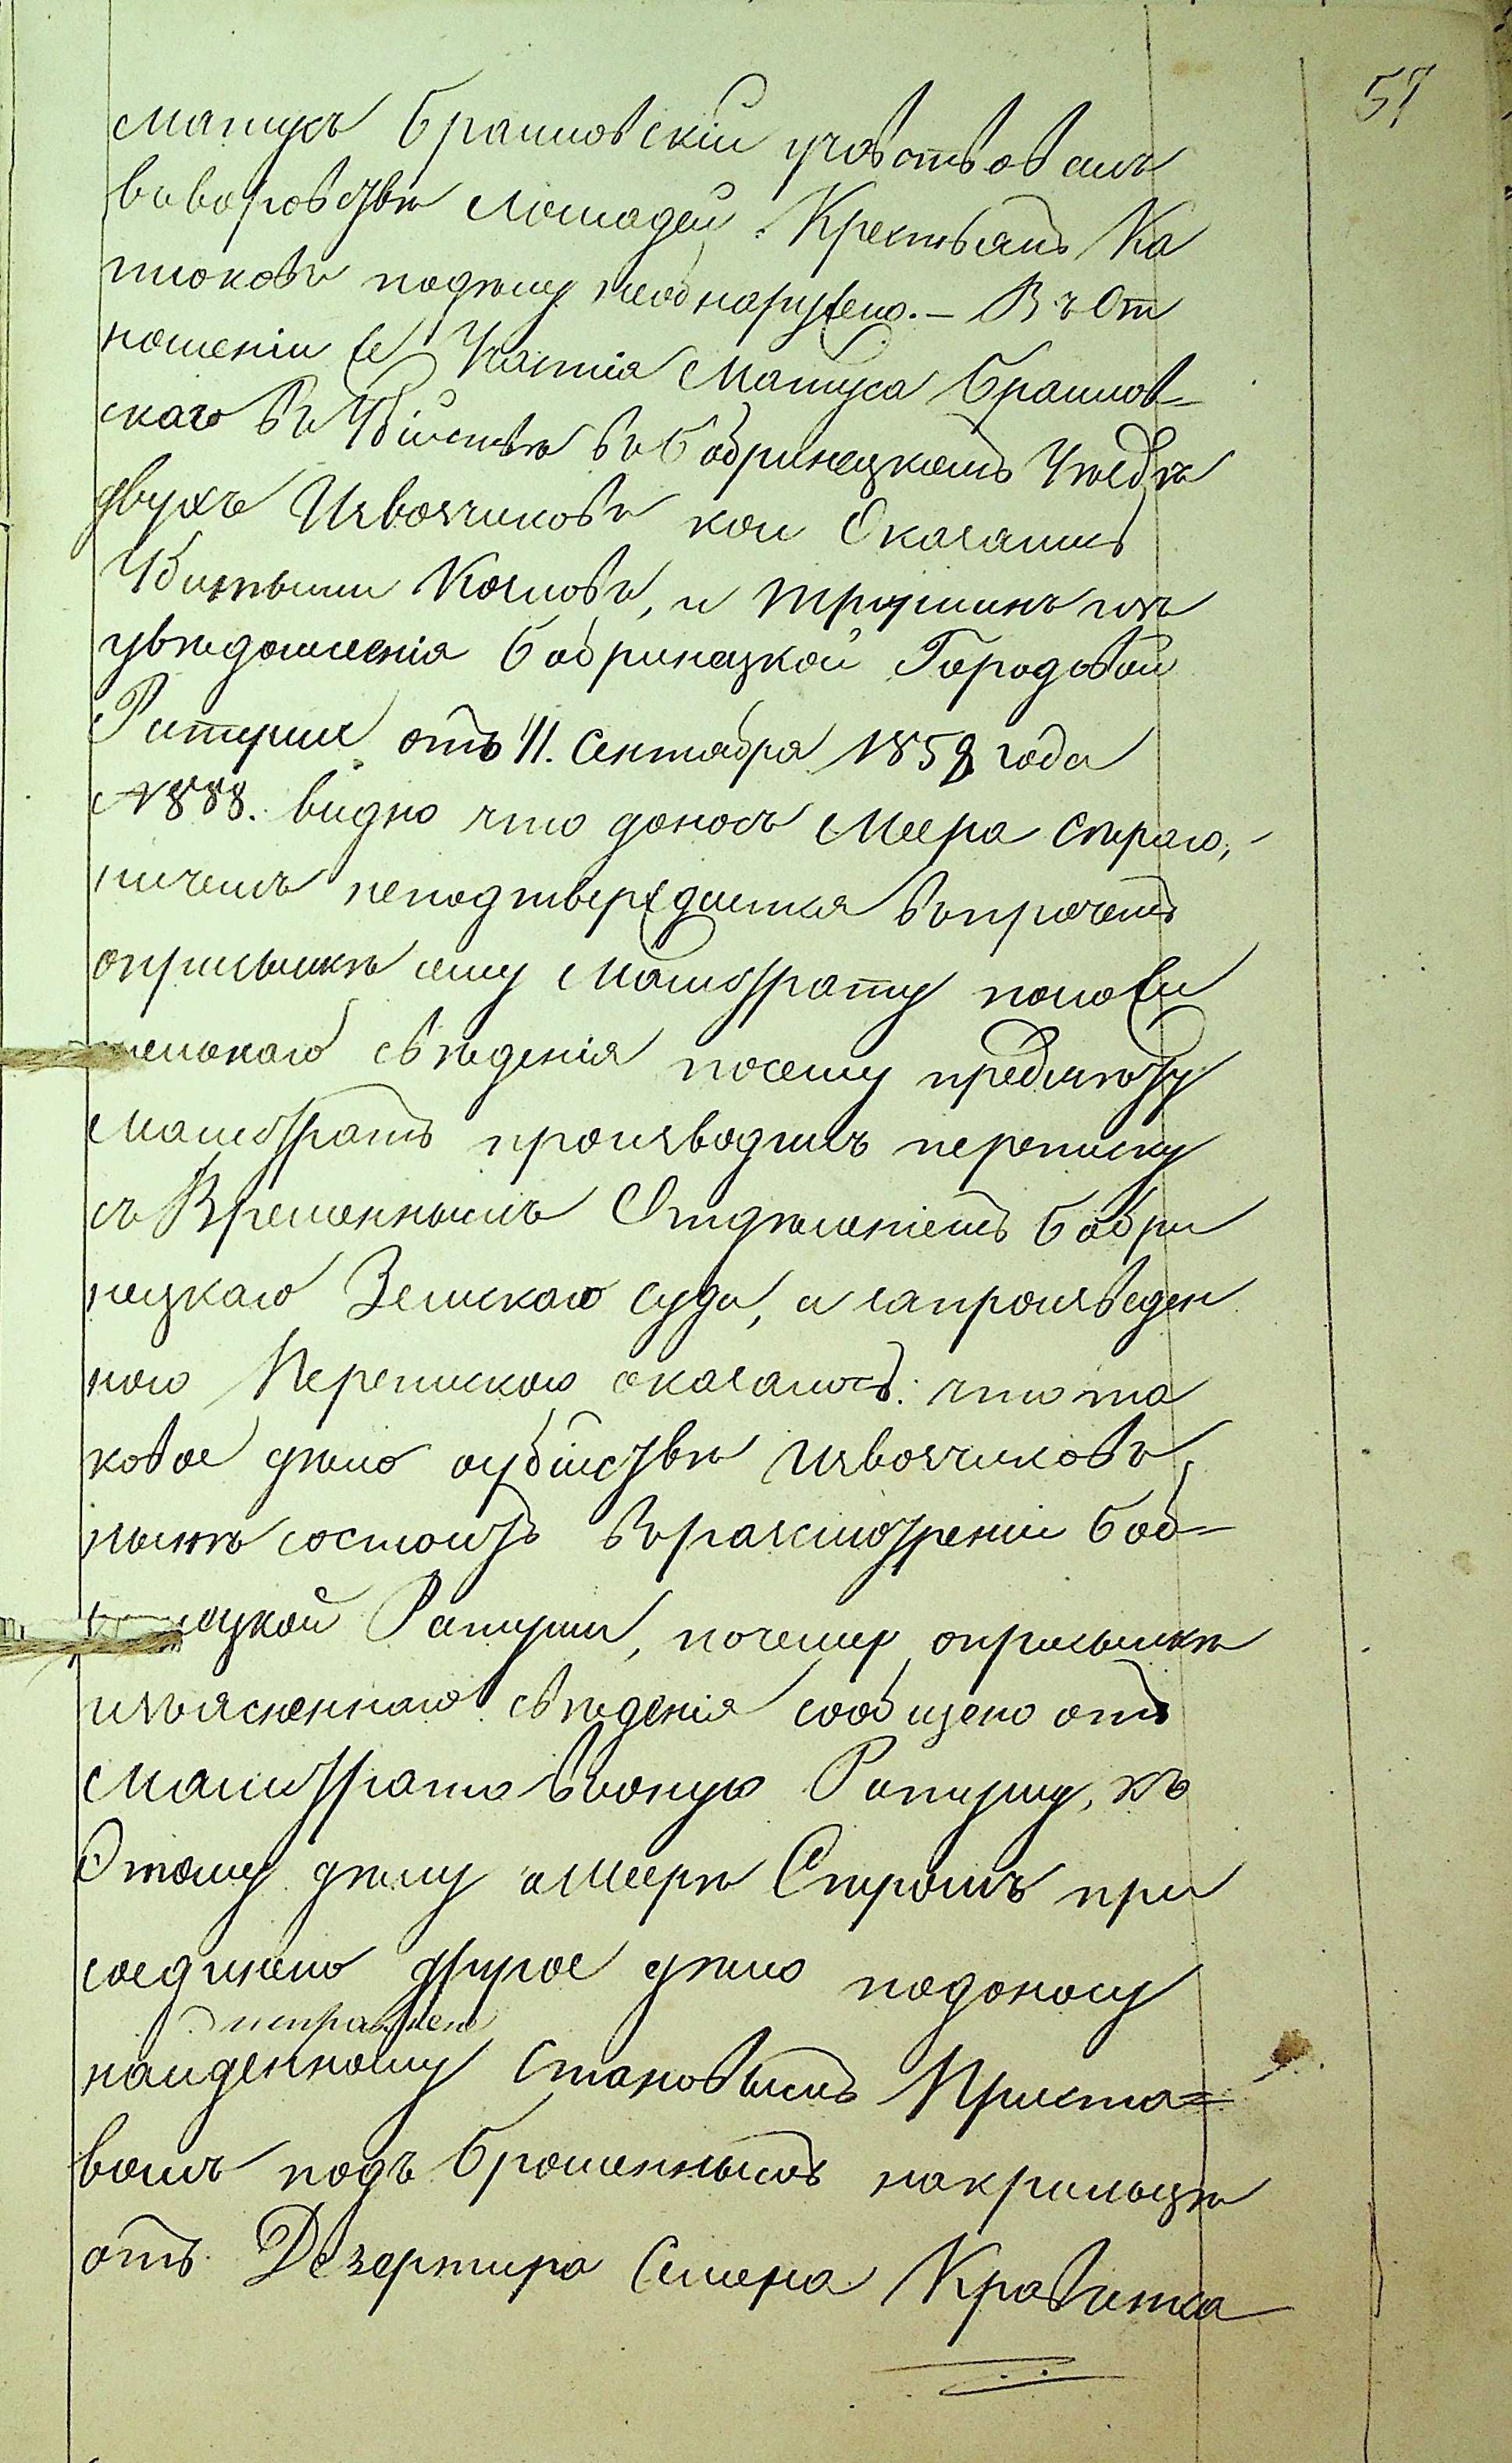 57
Матусъ Браиловскій участвовалъ
вворовствѣ лошадей Крестьянъ Ка
тюковъ подѣлу необнаружено. – Въ От
ношеніи же Участія Матуса Браилов-
скаго въ Убійствѣ въ Бобринецкомъ Уѣздѣ
двухъ Извощиковъ кои Оказались
Убитыми и
увѣдомленія Бобринецкой Городовой
Ратуши отъ 11. Сентября 1852 года
№ 888. видно что доносъ Меера
ничемъ неподтверждается впрочемъ
оприсылкѣ сему Магистрату положи
тельнаго свѣденія посему предмѣту
Магистратъ производилъ переписку
съ Временнымъ Отдѣленіемъ Бобри
нецкаго Земскаго суда, и запроизведен
ною Перепискою оказалось: что та
ковое дѣло оубійствѣ извощиковъ,
нынѣ состоитъ вразсмотреніи Боб-
нецкой Ратуши, почему оприсылкѣ
изъясненнаго свѣденія сообщено отъ
Магистрата въоную Ратушу, къ
Этому дѣлу оМеерѣ при
соединено другое дѣло подоносу
исправлено
найденному Становымъ Приста=
вомъ подъ брошеннымъ накрыльцѣ
отъ Дезертира Кравитка